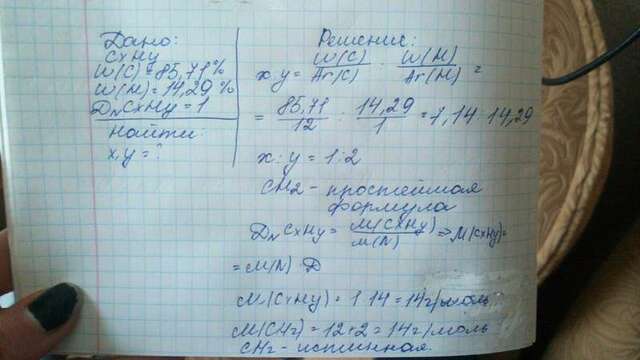 Дано:
CxHy
W(C)=85,71%
W(H)=14,29%
D_N CxHy=1
Найти:
x,y=?
Решение:
x:y = W(C)/Ar(C) : W(H)/Ar(H) =
= 85,71/12 : 14,29/1 = 7,14:14,29
x:y=1:2
CH2 - простейшая
формула
D_N CxHy = M(CxHy)/M(N) ⇒ M(CxHy)=
=M(N)·D
M(CxHy)=1·14=14г/моль
M(CH2)=12+2=14г/моль
CH2 - истинная